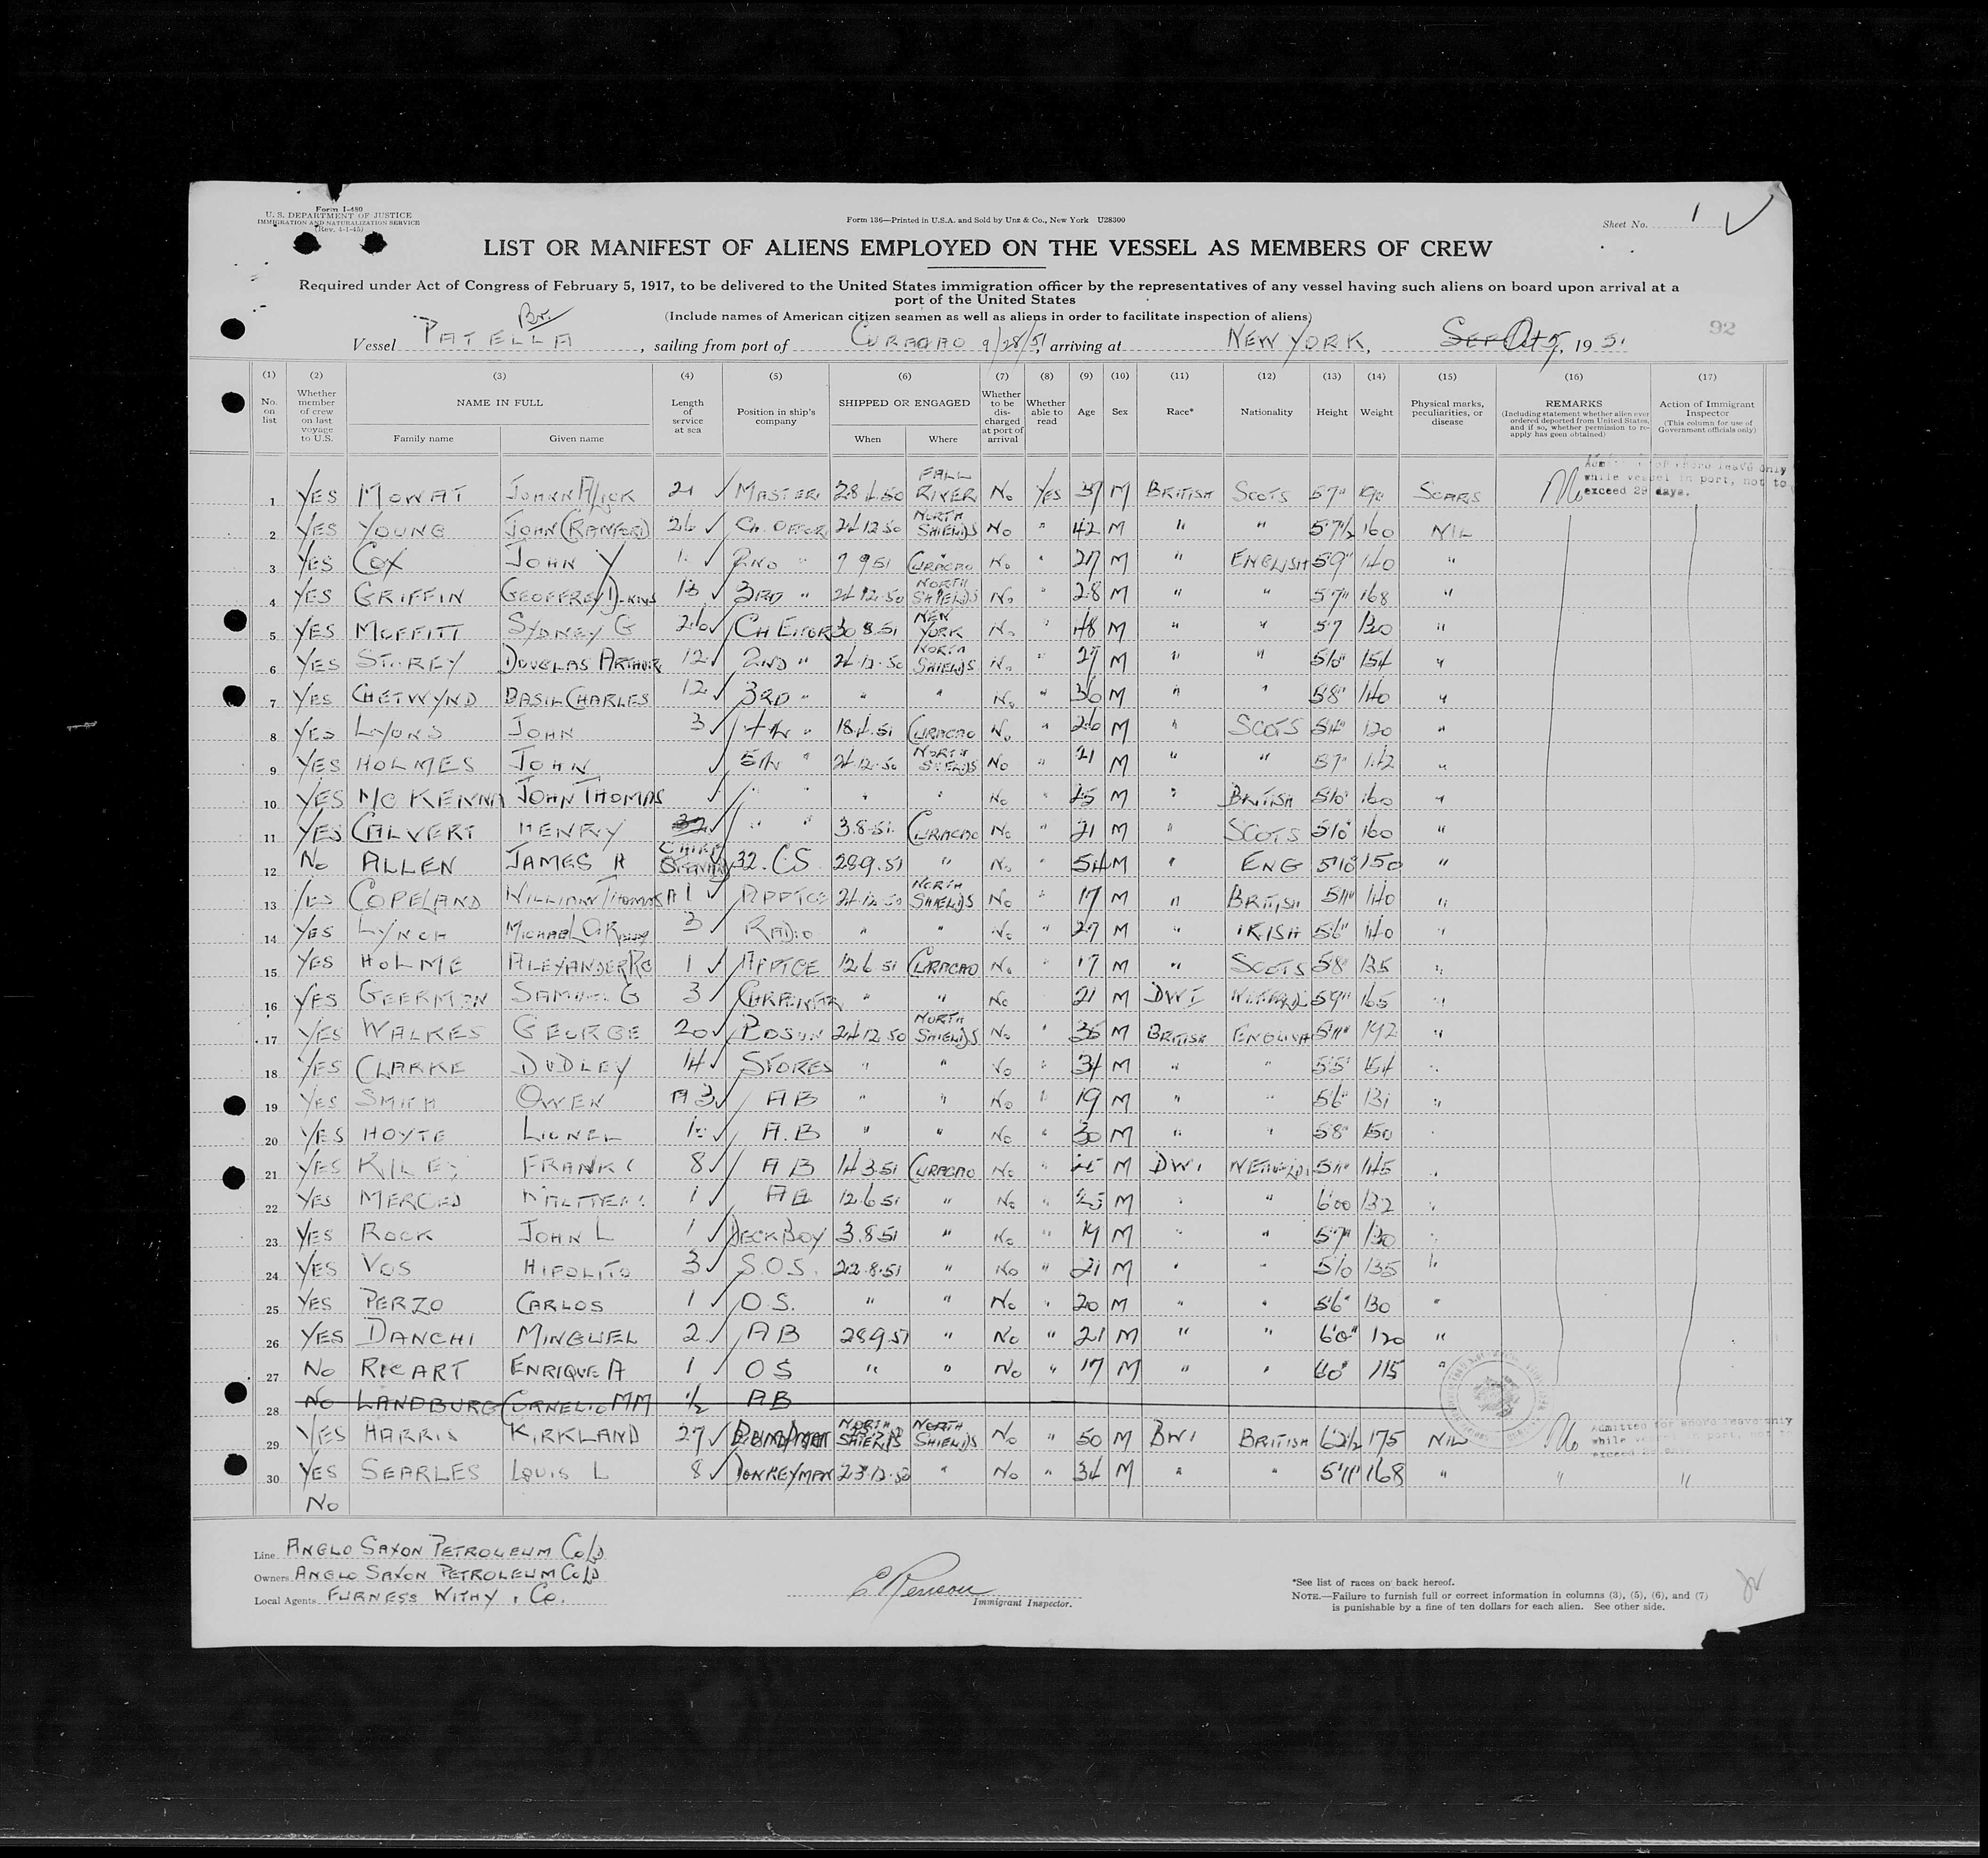 Form I-480
U. S. DEPARTMENT OF JUSTICE
IMMIGRATION AND NATURALIZATION SERVICE
(Rev. 4-1-45)
Form 136—Printed in U.S.A. and Sold by Unz & Co., New York U28300
Sheet No. 1
LIST OR MANIFEST OF ALIENS EMPLOYED ON THE VESSEL AS MEMBERS OF CREW
Required under Act of Congress of February 5, 1917, to be delivered to the United States immigration officer by the representatives of any vessel having such aliens on board upon arrival at a
port of the United States
(Include names of American citizen seamen as well as aliens in order to facilitate inspection of aliens)
92
Br.
Vessel PATELLA, sailing from port of CURACAO 9/28/51, arriving at NEW YORK, Oct 5, 1951
(1) (2) (3) (4) (5) (6) (7) (8) (9) (10) (11) (12) (13) (14) (15) (16) (17)
No. on list
Whether member of crew on last voyage to U.S.
NAME IN FULL
Family name Given name
Length of service at sea
Position in ship's company
SHIPPED OR ENGAGED
When Where
Whether to be discharged at port of arrival
Whether able to read
Age Sex Race* Nationality Height Weight
Physical marks, peculiarities, or disease
REMARKS
(Including statement whether alien ever ordered deported from United States, and if so, whether permission to reapply has been obtained)
Action of Immigrant Inspector
(This column for use of Government officials only)
shore leave only
while vessel in port, not to
exceed 29 days.
1 YES MOWAT 21 MASTER 28.4.50 FALL RIVER No YES 37 M BRITISH SCOTS 5'7" 190 SCARS No
2 YES YOUNG JOHN CRANFORD 26 CH. OFFCR 24 12 50 NORTH SHIELDS No " 42 M " " 5'7½ 160 NIL
3 YES COX JOHN Y 2ND " 7 9 51 CURACAO No " 27 M " ENGLISH 5'9" 140 "
4 YES GRIFFIN GEOFFREY 13 3RD " 24 12.50 NORTH SHIELDS No " 28 M " " 5'7" 168 "
5 YES MOFFITT SYDNEY G 26 CH 30 8.51 NEW YORK No " 48 M " " 5'7 130 "
6 YES STOREY DOUGLAS ARTHUR 12 2ND " 24.12.50 NORTH SHIELDS No " 27 M " " 5'10" 154 "
7 YES CHETWYND BASIL CHARLES 12 3RD " " " No " 36 M " " 5'8" 140 "
8 YES LYONS JOHN 3 4th " 18.4.51 CURACAO No " 26 M " SCOTS 5'4" 120 "
9 YES HOLMES JOHN 5th " 24.12.50 NORTH SHIELDS No " 21 M " " 5'7" 142 "
10 YES MC KENNA JOHN THOMAS " " " " No " 25 M " BRITISH 5'10" 160 "
11 YES CALVERT HENRY 32 " " 3.8.51 CURACAO No " 21 M " SCOTS 5'10" 160 "
12 No ALLEN JAMES A CHIEF 32. CS 28 9.51 " No " 54 M " ENG 5'10 150 "
13 YES COPELAND WILLIAM THOMAS A 1 APPTCE 24.12.50 NORTH SHIELDS No " 17 M " BRITISH 5'11" 140 "
14 YES LYNCH MICHAEL 3 RADIO " " No " 27 M " IRISH 5'6" 140 "
15 YES HOLME ALEXANDER 1 APPTCE 12.6.51 CURACAO No " 17 M " SCOTS 5'8" 135 "
16 YES GEERMAN SAMUEL G 3 CARPENTER " " No 21 M DWI 5'9" 165 "
17 YES WALKES GEORGE 20 BOSUN 24 12 50 NORTH SHIELDS No " 35 M BRITISH ENGLISH 5'11" 192 "
18 YES CLARKE DUDLEY 14 STORES " " No " 34 M " " 5'5" 154 "
19 YES SMITH OWEN A 3 AB " " No " 19 M " " 5'6" 131 "
20 YES HOYTE LIONEL A.B " " No " 30 M " " 5'8" 150
21 YES RILEY FRANK C 8 AB 14 3.51 CURACAO No " 25 M DWI 5'11" 145 "
22 YES 1 AB 12.6.51 " No " M " " 6'00 132 "
23 YES ROCK JOHN L 1 DECK BOY 3.8.51 " No " 19 M " " 5'7" 130 "
24 YES VOS HIPOLITO 3 S.O.S. 22.8.51 " No " 21 M " " 5'10 135 "
25 YES PERZO CARLOS 1 O.S. " " No " 20 M " " 5'6" 130 "
26 YES DANCHI MINGUEL 2 AB 28 9 51 " No " 21 M " " 6'0" 120 "
27 No RICART ENRIQUE A 1 OS " " No " 17 M " " 6'0" 115 "
28 No LANDBURG CORNELIO MM ½ AB
29 YES HARRIS KIRKLAND 27 NORTH SHIELDS NORTH SHIELDS No " 50 M BWI BRITISH 6'2½ 175 NIL No Admitted for shore leave only
while vessel in port, not to
30 YES SEARLES LOUIS L 8 DONKEYMAN 23.12.50 " No " 34 M " " 5'11" 168 " " "
No
Line ANGLO SAXON PETROLEUM Co Ld
Owners ANGLO SAXON PETROLEUM Co Ld
Local Agents FURNESS WITHY & Co.
Immigrant Inspector.
*See list of races on back hereof.
NOTE.—Failure to furnish full or correct information in columns (3), (5), (6), and (7)
is punishable by a fine of ten dollars for each alien. See other side.